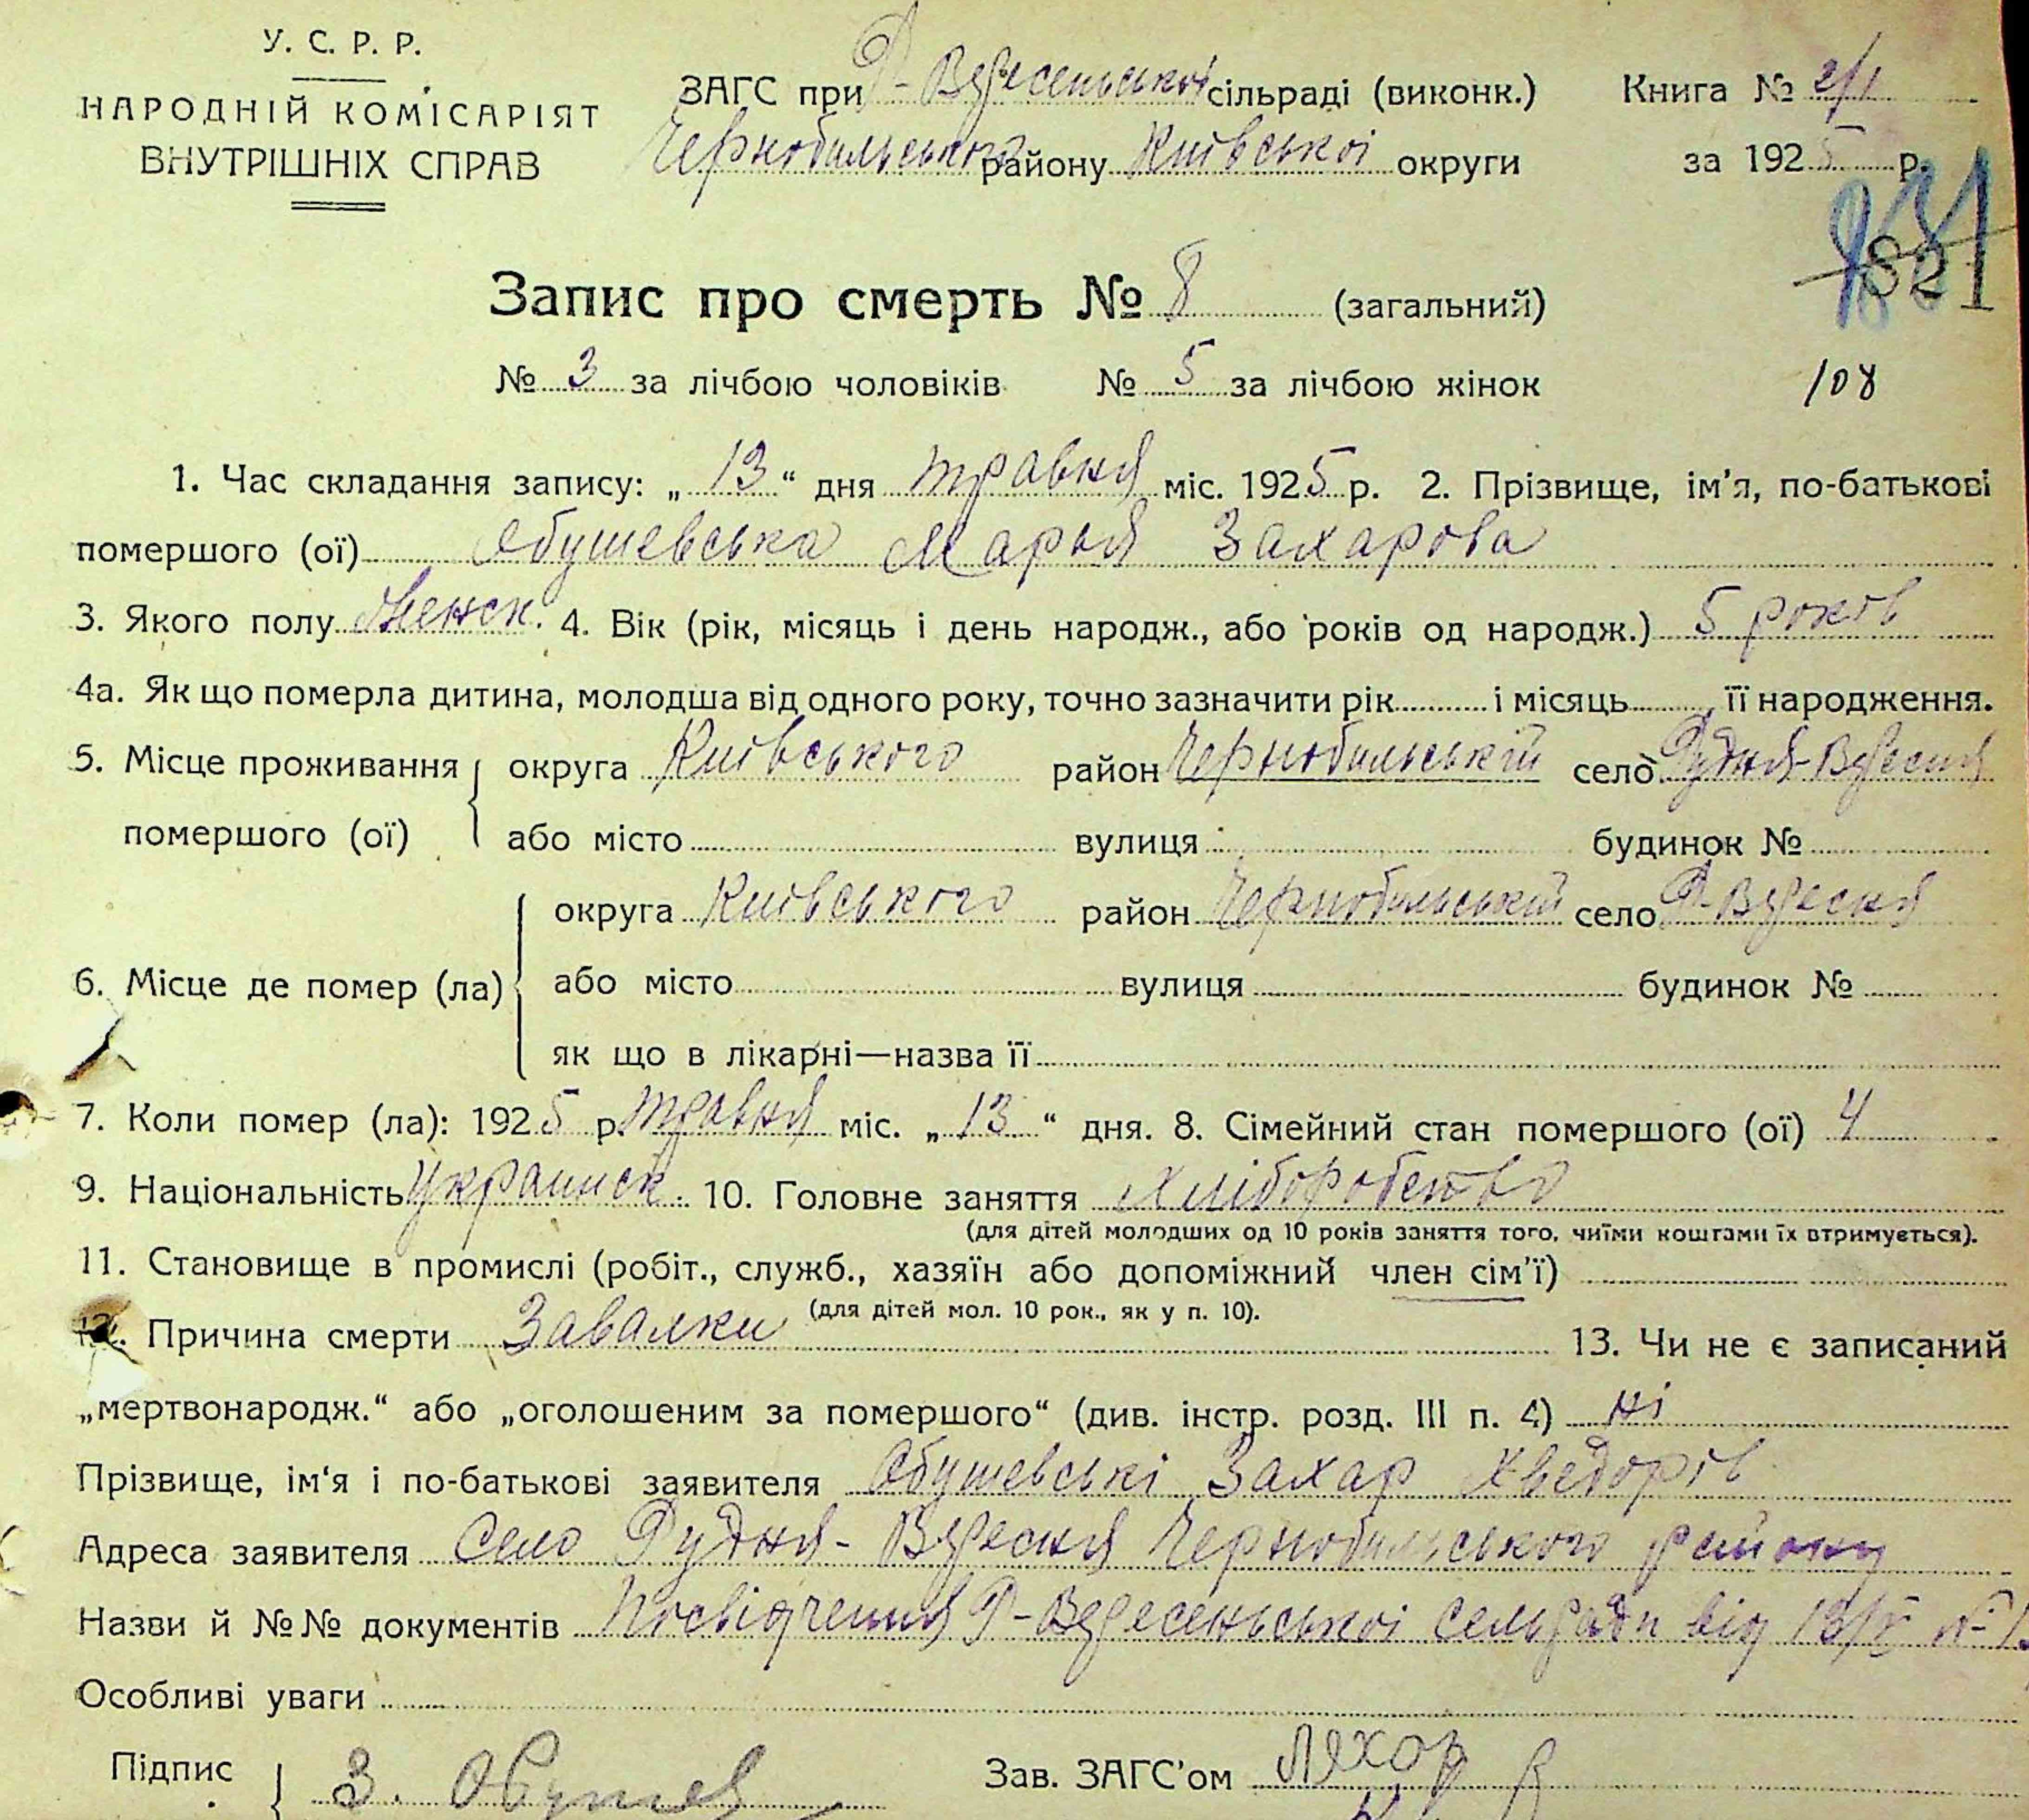 У. С. Р. Р.
НАРОДНІЙ КОМІСАРІЯТ
ВНУТРІШНІХ СПРАВ
ЗАГС при Р-Вересенської сільраді (виконк.)
Чернобильського району Київської округи
Книга №
за 1925 р.
821
Запис про смерть № 8 (загальний)
№ 3 за лічбою чоловіків № 5 за лічбою жінок
108
1. Час складання запису: „13“ дня травня міс. 1925 р. 2. Прізвище, ім’я, по-батькові
помершого (ої) Обушевська Марья Захарова
3. Якого полу женск. 4. Вік (рік, місяць і день народж., або років од народж.) 5 років
4а. Як що померла дитина, молодша від одного року, точно зазначити рік і місяць її народження.
5. Місце проживання помершого (ої) округа Київського район Чернобильській село Рудня-Вересня
або місто вулиця будинок №
6. Місце де помер (ла) округа Київського район Чернобильській село Р-Вересня
або місто вулиця будинок №
як що в лікарні—назва її
7. Коли помер (ла): 1925 р. травня міс. „13“ дня. 8. Сімейний стан помершого (ої) 4
9. Національність Украинск. 10. Головне заняття хліборобство
(для дітей молодших од 10 років заняття того, чиїми коштами їх втримується).
11. Становище в промислі (робіт., служб., хазяїн або допоміжний член сім’ї)
(для дітей мол. 10 рок., як у п. 10).
12. Причина смерти Завалки 13. Чи не є записаний
„мертвонародж.“ або „оголошеним за помершого“ (див. інстр. розд. III п. 4) ні
Прізвище, ім‘я і по-батькові заявителя Обушевські Захар Хведорів
Адреса заявителя Село Рудня-Вересня Чернобильського району
Назви й №№ документів Посвідчення Р-Вересенської сельради від 13/V №
Особливі уваги
Підпис З. Обушев
Зав. ЗАГС’ом Ляхов